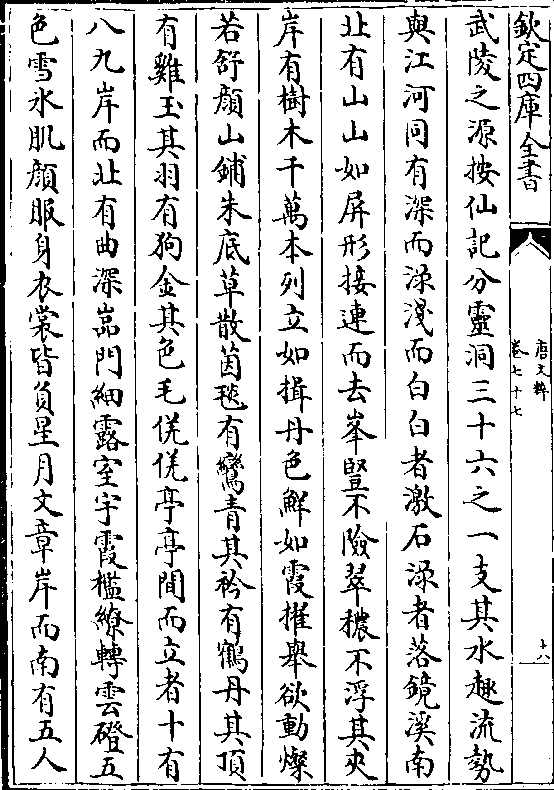 欽定四庫全書
唐文粹
卷七十七
十八
武陵之源按仙記分靈洞三十六之一支其水趣流勢
與江河同有深而淥淺而白白者激石淥者落鏡溪南
北有山山如屏形接連而去峯豎不險翠穠不浮其夾
岸有樹木千萬本列立如揖丹色鮮如霞擢舉欲動燦
若舒顏山鋪朱底草散茵毯有鸞青其衿有鶴丹其頂
有雞玉其羽有狗金其色毛傞傞亭亭閒而立者十有
八九岸而北有曲深嵓門細露室宇霞檻繚轉雲磴五
色雪氷肌顏服身衣裳皆負星月文章岸而南有五人